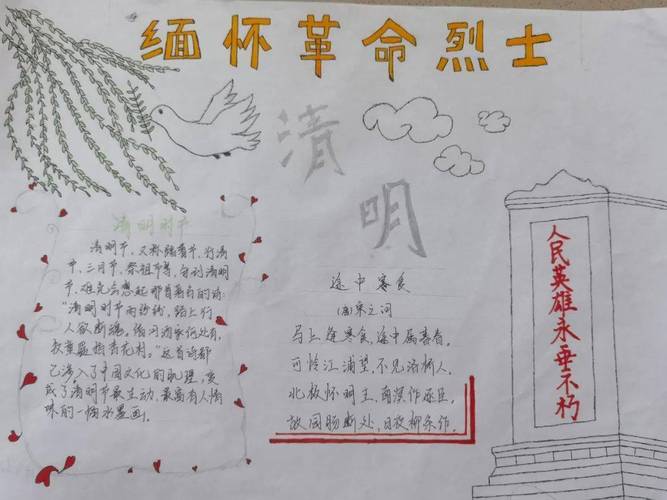 缅怀革命烈士
清
明
清明时节
清明节，又称踏青节、行清
节、三月节、祭祖节等，每到清明
节，难免会想起那首著名的诗：
“清明时节雨纷纷，路上行
人欲断魂，借问酒家何处有，
牧童遥指杏花村。”这首诗都
已渗入了中国文化的肌理，变
成了清明节最生动、最富有人情
味的一幅水墨画。
途中寒食
(唐)宋之问
马上逢寒食，途中属暮春。
可怜江浦望，不见洛桥人。
北极怀明主，南溟作逐臣。
故园肠断处，日夜柳条
人民英雄永垂不朽